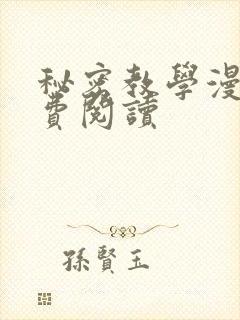 秘密教學漫
費閱讀
孫賢玉